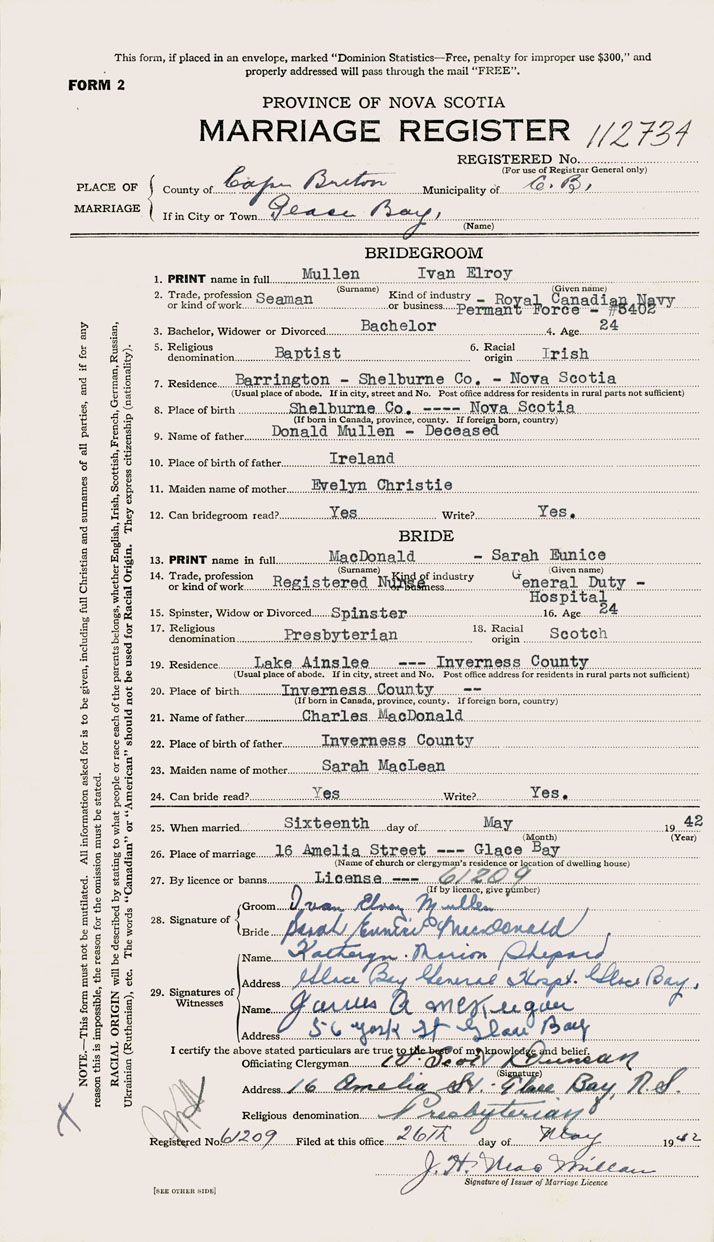 This form, if placed in an envelope, marked "Dominion Statistics—Free, penalty for improper use $300," and
properly addressed will pass through the mail "FREE".
FORM 2
PROVINCE OF NOVA SCOTIA
MARRIAGE REGISTER 112734
REGISTERED No.
(For use of Registrar General only)
PLACE OF MARRIAGE
County of Cape Breton Municipality of C. B.
If in City or Town Glace Bay,
(Name)
BRIDEGROOM
1. PRINT name in full Mullen Ivan Elroy
(Surname) (Given name)
2. Trade, profession or kind of work Seaman Kind of industry or business - Royal Canadian Navy
Permant Force - #5402
3. Bachelor, Widower or Divorced Bachelor 4. Age 24
5. Religious denomination Baptist 6. Racial origin Irish
7. Residence Barrington - Shelburne Co. - Nova Scotia
(Usual place of abode. If in city, street and No. Post office address for residents in rural parts not sufficient)
8. Place of birth Shelburne Co. ---- Nova Scotia
(If born in Canada, province, county. If foreign born, country)
9. Name of father Donald Mullen - Deceased
10. Place of birth of father Ireland
11. Maiden name of mother Evelyn Christie
12. Can bridegroom read? Yes Write? Yes.
BRIDE
13. PRINT name in full MacDonald - Sarah Eunice
(Surname) (Given name)
14. Trade, profession or kind of work Registered Nurse Kind of industry or business General Duty -
Hospital
15. Spinster, Widow or Divorced Spinster 16. Age 24
17. Religious denomination Presbyterian 18. Racial origin Scotch
19. Residence Lake Ainslee --- Inverness County
(Usual place of abode. If in city, street and No. Post office address for residents in rural parts not sufficient)
20. Place of birth Inverness County --
(If born in Canada, province, county. If foreign born, country)
21. Name of father Charles MacDonald
22. Place of birth of father Inverness County
23. Maiden name of mother Sarah MacLean
24. Can bride read? Yes Write? Yes.
25. When married Sixteenth day of May 19 42
(Month) (Year)
26. Place of marriage 16 Amelia Street --- Glace Bay
(Name of church or clergyman's residence or location of dwelling house)
27. By licence or banns License --- 61209
(If by licence, give number)
28. Signature of
Groom Ivan Elroy Mullen
Bride Sarah Eunice MacDonald
29. Signatures of Witnesses
Name Katheryn Marion Shepard
Address Glace Bay General Hospt. Glace Bay,
Name James A
Address 56 York St Glace Bay
I certify the above stated particulars are true to the best of my knowledge and belief.
Officiating Clergyman W. Scott Duncan
(Signature)
Address 16 Amelia St. Glace Bay, N.S.
Religious denomination Presbyterian
Registered No. 61209 Filed at this office 26th day of May 19 42
J. H. MacMillan
Signature of Issuer of Marriage Licence
[SEE OTHER SIDE]
NOTE.—This form must not be mutilated. All information asked for is to be given, including full Christian and surnames of all parties, and if for any
reason this is impossible, the reason for the omission must be stated.
RACIAL ORIGIN will be described by stating to what people or race each of the parents belongs, whether English, Irish, Scottish, French, German, Russian,
Ukrainian (Ruthenian), etc. The words "Canadian" or "American" should not be used for Racial Origin. They express citizenship (nationality).
X